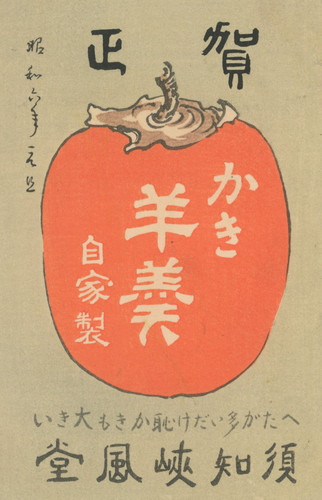 賀正
昭和六年元旦
かき
羊羹
自家製
へたが多いだけ恥かきも大きい
須知峽風堂